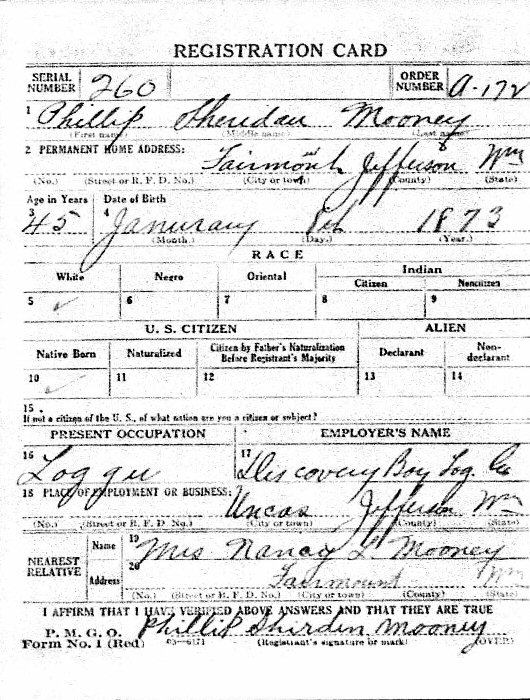 REGISTRATION CARD
SERIAL NUMBER 260 ORDER NUMBER A-172
1 Phillip Sheridan Mooney
(First name) (Middle name) (Last name)
2 PERMANENT HOME ADDRESS: Fairmont Jefferson Wn
(No.) (Street or R. F. D. No.) (City or town) (County) (State)
Age in Years Date of Birth
3 45 4 Januray 8th 1873
(Month.) (Day.) (Year.)
RACE
White Negro Oriental Indian
Citizen Noncitizen
5 ✓ 6 7 8 9
U. S. CITIZEN ALIEN
Native Born Naturalized Citizen by Father's Naturalization Before Registrant's Majority Declarant Non-declarant
10 ✓ 11 12 13 14
15.
If not a citizen of the U. S., of what nation are you a citizen or subject?
PRESENT OCCUPATION EMPLOYER'S NAME
16 Logger 17 Discovery Bay Log. Co
18 PLACE OF EMPLOYMENT OR BUSINESS: Uncas Jefferson Wn
(No.) (Street or R. F. D. No.) (City or town) (County) (State)
NEAREST RELATIVE
Name 19 Mrs Nancy L Mooney
Address 20 Fairmount Wn
(No.) (Street or R. F. D. No.) (City or town) (County) (State)
I AFFIRM THAT I HAVE VERIFIED ABOVE ANSWERS AND THAT THEY ARE TRUE
P. M. G. O. Phillip Shirden Mooney
Form No. 1 (Red) 03—6171 (Registrant's signature or mark) (OVER)